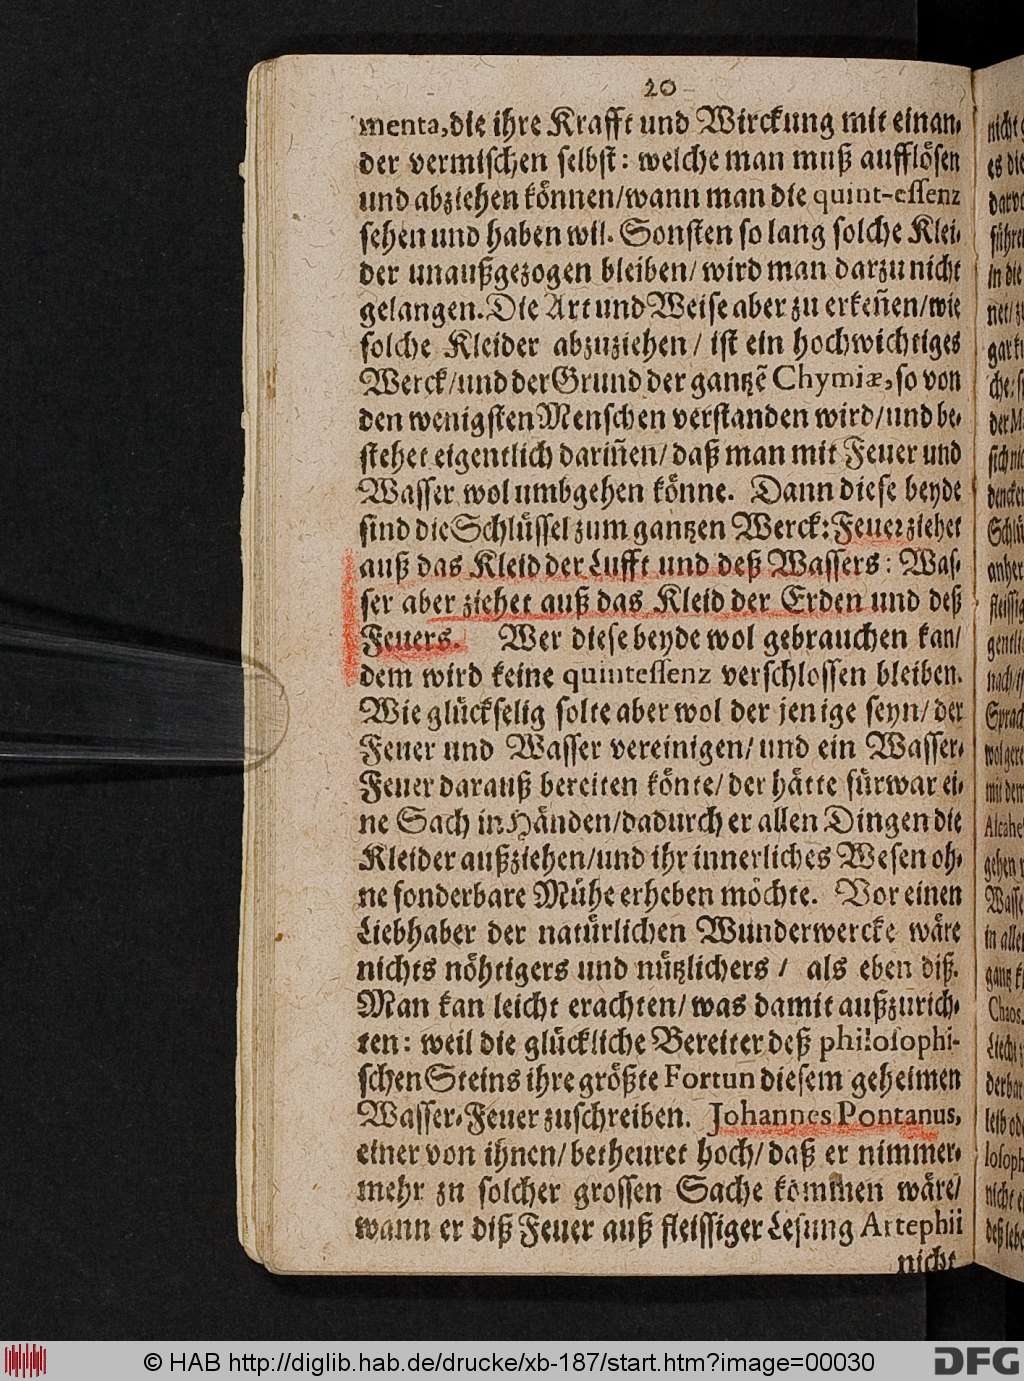 20
menta, die ihre Krafft und Wirckung mit einan-
der vermischen selbst: welche man muß aufflösen
und abziehen können/wann man die quint-essenz
sehen und haben wil. Sonsten so lang solche Klei-
der unaußgezogen bleiben/ wird man darzu nicht
gelangen. Die Art und Weise aber zu erkeñen/wie
solche Kleider abzuziehen/ ist ein hochwichtiges
Werck/und der Grund der gantzẽ Chymiæ, so von
den wenigsten Menschen verstanden wird/und be-
stehet eigentlich dariñen/ daß man mit Feuer und
Wasser wol umbgehen könne. Dann diese beyde
sind die Schlüssel zum gantzen Werck: Feuer ziehet
auß das Kleid der Lufft und deß Wassers: Was-
ser aber ziehet auß das Kleid der Erden und deß
Feuers. Wer diese beyde wol gebrauchen kan/
dem wird keine quintessenz verschlossen bleiben.
Wie glückselig solte aber wol der jenige seyn/ der
Feuer und Wasser vereinigen/ und ein Wasser-
Feuer darauß bereiten könte/ der hätte fürwar ei-
ne Sach in Händen/dadurch er allen Dingen die
Kleider außziehen/und ihr innerliches Wesen oh-
ne sonderbare Mühe erheben möchte. Vor einen
Liebhaber der natürlichen Wunderwercke wäre
nichts nöhtigers und nützlichers / als eben diß.
Man kan leicht erachten/ was damit außzurich-
ten: weil die glückliche Bereiter deß philosophi-
schen Steins ihre größte Fortun diesem geheimen
Wasser-Feuer zuschreiben. Johannes Pontanus,
einer von ihnen/ betheuret hoch/ daß er nimmer-
mehr zu solcher grossen Sache kommen wäre/
wann er diß Feuer auß fleissiger Lesung Artephii
nicht
© HAB http://diglib.hab.de/drucke/xb-187/start.htm?image=00030
DFG